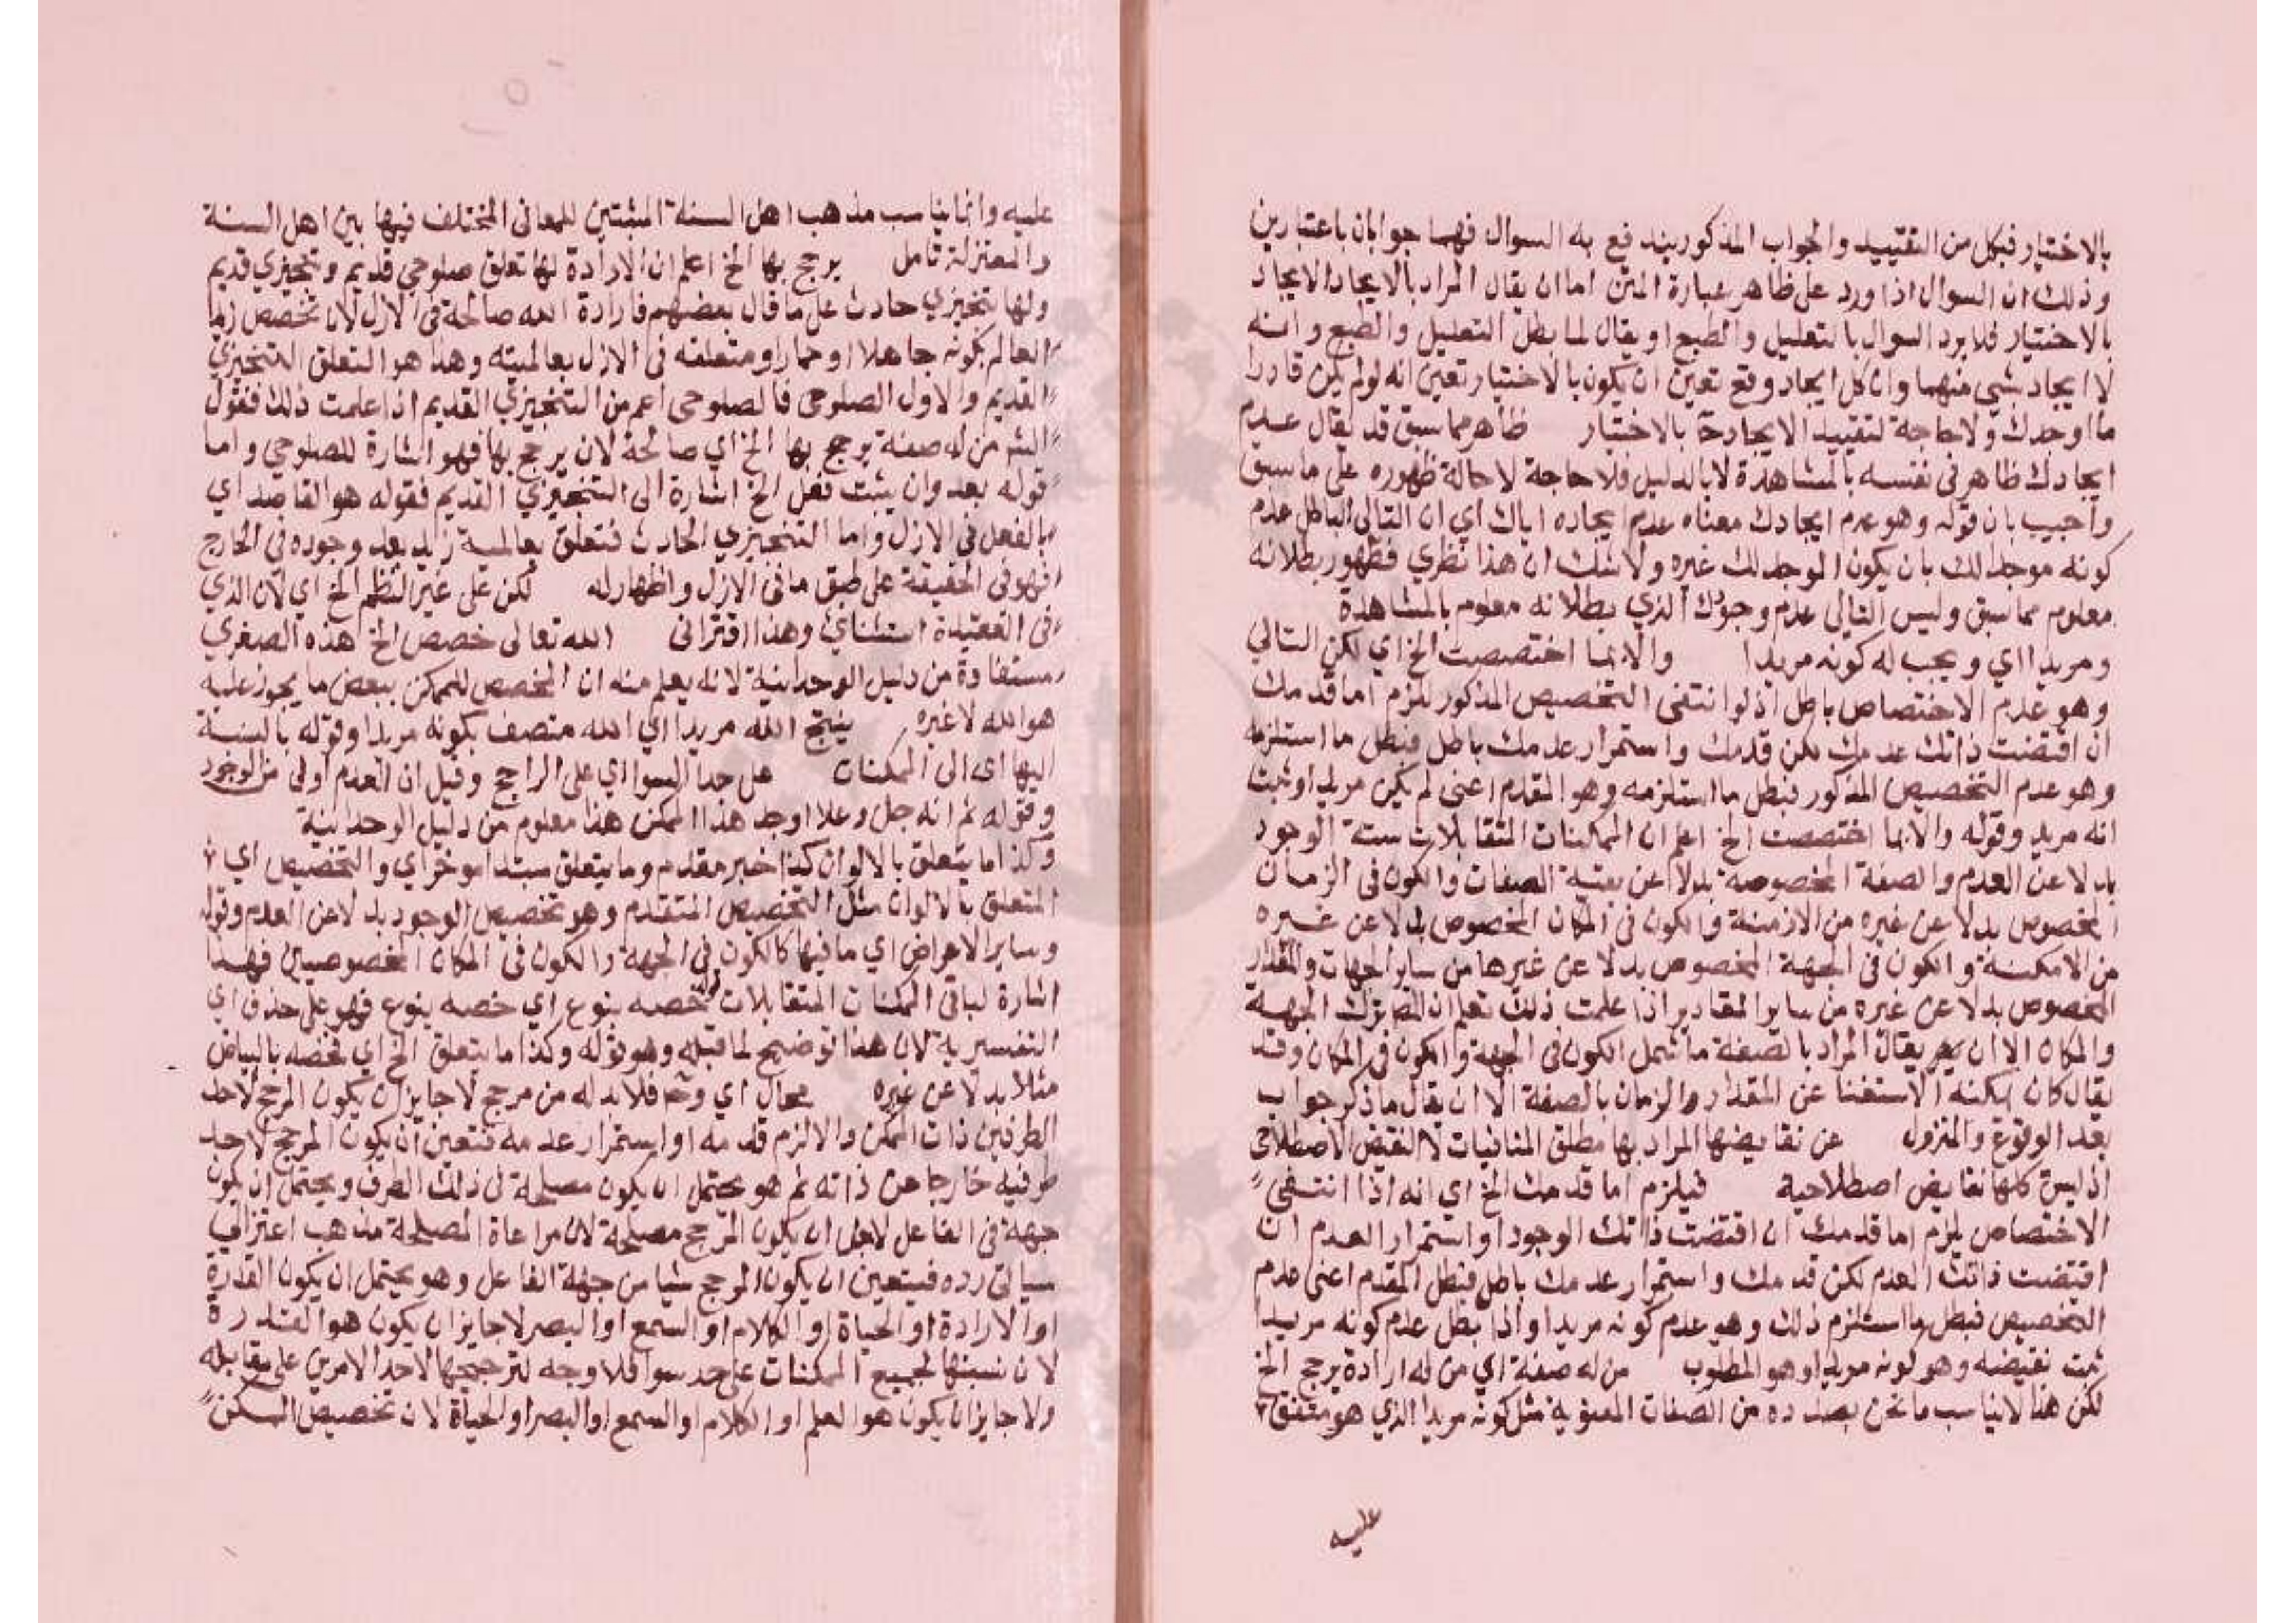 بالاختيار فبكل من التقييد والجواب المذكور يندفع به السوال فهما جوابان باعتبارين
وذلك ان السوال اذا ورد على ظاهر عبارة المتن اما ان يقال المراد بالايجاد الايجاد
بالاختيار فلا يرد السوال بالتعليل والطبع او يقال لما بطل التعليل والطبع وانه
لا ايجاد بشي منهما وان كل ايجاد وقع تعين ان يكون بالاختيار تعين انه لو لم يكن قادرا
ما اوجدك ولا حاجة لتقييد الايجاد ح بالاختيار ظاهر مما سبق قد يقال عدم
ايجادك ظاهر في نفسه بالمشاهدة لا بالدليل فلا حاجة لاحالة ظهوره على ما سبق
واجيب بان قوله وهو عدم ايجادك معناه عدم ايجاده اياك اي ان التالي الباطل عدم
كونه موجدا لك بان يكون الموجد لك غيره ولا شك ان هذا نظري فظهور بطلانه
معلوم مما سبق وليس التالي عدم وجودك الذي بطلانه معلوم بالمشاهدة
ومريدا اي ويجب له كونه مريدا والا لما اختصصت الخ اي لكن التالي
وهو عدم الاختصاص باطل اذ لو انتفى التخصيص المذكور للزم اما قدمك
ان اقتضت ذاتك عدمك لكن قدمك واستمرار عدمك باطل فبطل ما استلزمه
وهو عدم التخصيص المذكور فبطل ما استلزمه وهو المقدم اعنى لم يكن مريدا وثبت
انه مريد وقوله والا لما اختصصت الخ اعلم ان الممكنات المتقابلات ستة الوجود
بدلا عن العدم والصفة المخصوصة بدلا عن بقية الصفات والكون في الزمان
المخصوص بدلا عن غيره من الازمنة والكون في المكان المخصوص بدلا عن غيره
من الامكنة والكون في الجهة المخصوص بدلا عن غيرها من ساير الجهات والمقدار
المخصوص بدلا عن غيره من ساير المقادير اذا علمت ذلك تعلم ان المص ترك الجهة
والمكان الا ان يقال المراد بالصفة ما شمل الكون في الجهة والكون في المكان وقد
يقال كان يمكنه الاستغنا عن المقدار والزمان بالصفة الا ان يقال ما ذكر جواب
بعد الوقوع والنزول عن نقايضها المراد بها مطلق المنافيات لا النقيض الاصطلاحى
اذ ليس كلها نقايض اصطلاحية فيلزم اما قدمك الخ اي انه اذا انتفى
الاختصاص يلزم اما قدمك ان اقتضت ذاتك الوجود او استمرار العدم ان
اقتضت ذاتك العدم لكن قدمك واستمرار عدمك باطل فبطل المقدم اعنى عدم
التخصيص فبطل ما استلزم ذلك وهو عدم كونه مريدا واذا بطل عدم كونه مريدا
ثبت نقيضه وهو كونه مريدا وهو المطلوب من له صفة اي من له ارادة يرجح الخ
لكن هذا لا يناسب ما نحن بصدده من الصفات المعنوية مثل كونه مريدا الذي هو متفق
عليه
عليه وانما يناسب مذهب اهل السنة المثبتين للمعاني المختلف فيها بين اهل السنة
والمعتزلة تامل يرجح بها الخ اعلم ان الارادة لها تعلق صلوحي قديم وتنجيزي قديم
ولها تنجيزي حادث على ما قال بعضهم فارادة الله صالحة في الازل لان تخصص زيدا
العالم بكونه جاهلا او حمارا ومتعلقه في الازل بعالميته وهذا هو التعلق التنجيزي
القديم والاول الصلوحى فالصلوحى اعم من التنجيزي القديم اذا علمت ذلك فقول
الشم من له صفة يرجح بها الخ اي صالحة لان يرجح بها فهو اشارة للصلوحي واما
قوله بعد وان يثبت فعل الخ اشارة الى التنجيزي القديم فقوله هو القاصد اي
بالفعل في الازل واما التنجيزي الحادث فتتعلق بعالمية زيد بعد وجوده في الخارج
فهو في الحقيقة على طبق ما في الازل واظهار له لكن على غير النظم الخ اي لان الذي
في العقيدة استثنائي وهذا اقتراني الله تعالى خصص الخ هذه الصغري
مستفادة من دليل الوحدانية لانه يعلم منه ان المخصص للممكن ببعض ما يجوز عليه
هو الله لا غيره ينتج الله مريدا اي الله متصف بكونه مريدا وقوله بالنسبة
اليها اى الى الممكنات على حد السوا اي على الراجح وقيل ان العدم اولى من الوجود
وقوله ثم انه جل وعلا اوجد هذا الممكن هذا معلوم من دليل الوحدانية
وكذا ما يتعلق بالالوان كذا خبر مقدم وما يتعلق مبتدا موخر اي والتخصيص اي
المتعلق بالالوان مثل التخصيص المتقدم وهو تخصيص الوجود بدلا عن العدم وقوله
وساير الاعراض اي ما فيها كالكون في الجهة والكون في المكان المخصوصين فهذا
اشارة لباقي الممكنات المتقابلات قوله خصه بنوع اي خصه بنوع فهو على حذف اي
التفسيرية لان هذا توضيح لما قبله وهو قوله وكذا ما يتعلق الخ اي فخصه بالبياض
مثلا بدلا عن غيره محال اي وح فلا بد له من مرجح لا جايز ان يكون المرجح لاحد
الطرفين ذات الممكن والا لزم قدمه او استمرار عدمه فتعين ان يكون المرجح لاحد
طرفيه خارجا عن ذاته ثم هو يحتمل ان يكون مصلحة في ذلك الطرف ويحتمل ان يكون
جهة في الفاعل لا جايز ان يكون المرجح مصلحة لان مراعاة المصلحة مذهب اعتزالي
سياتى رده فيتعين ان يكون المرجح شيا من جهة الفاعل وهو يحتمل ان يكون القدرة
او الارادة او الحياة او الكلام او السمع او البصر لا جايز ان يكون هو القدرة
لان نسبتها لجميع الممكنات على حد سوا فلا وجه لترجيحها لاحد الامرين على مقابله
ولا جايز ان يكون هو العلم او الكلام او السمع او البصر او الحياة لان تخصيص الممكن